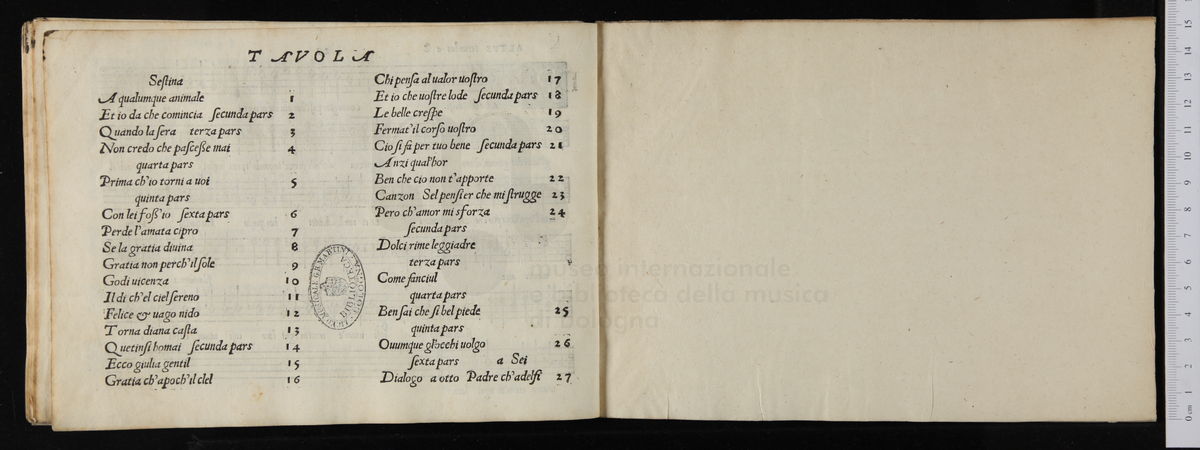 TAVOLA
Sestina
A qualumque animale 1
Et io da che comincia secunda pars 2
Quando la sera terza pars 3
Non credo che pascesse mai 4
quarta pars
Prima ch'io torni a uoi 5
quinta pars
Con lei foss'io sexta pars 6
Perde l'amata cipro 7
Se la gratia diuina 8
Gratia non perch'il sole 9
Godi uicenza 10
Il di ch'el ciel sereno 11
Felice & uago nido 12
Torna diana casta 13
Que tinsi homai secunda pars 14
Ecco giulia gentil 15
Gratia ch'apoch'il ciel 16
Chi pensa al ualor uostro 17
Et io che uostre lode secunda pars 18
Le belle crespe 19
Fermat'il corso uostro 20
Cio si fa per tuo bene secunda pars 21
Anzi qual'hor
Ben che cio non t'apporte 22
Canzon Sel pensier che mi strugge 23
Pero ch'amor mi sforza 24
secunda pars
Dolci rime leggiadre
terza pars
Come fanciul
quarta pars
Ben sai che si bel piede 25
quinta pars
Ouumque gl'occhi uolgo 26
sexta pars a Sei
Dialogo a otto Padre ch'adelsi 27
museo internazionale
e biblioteca della musica
di Bologna